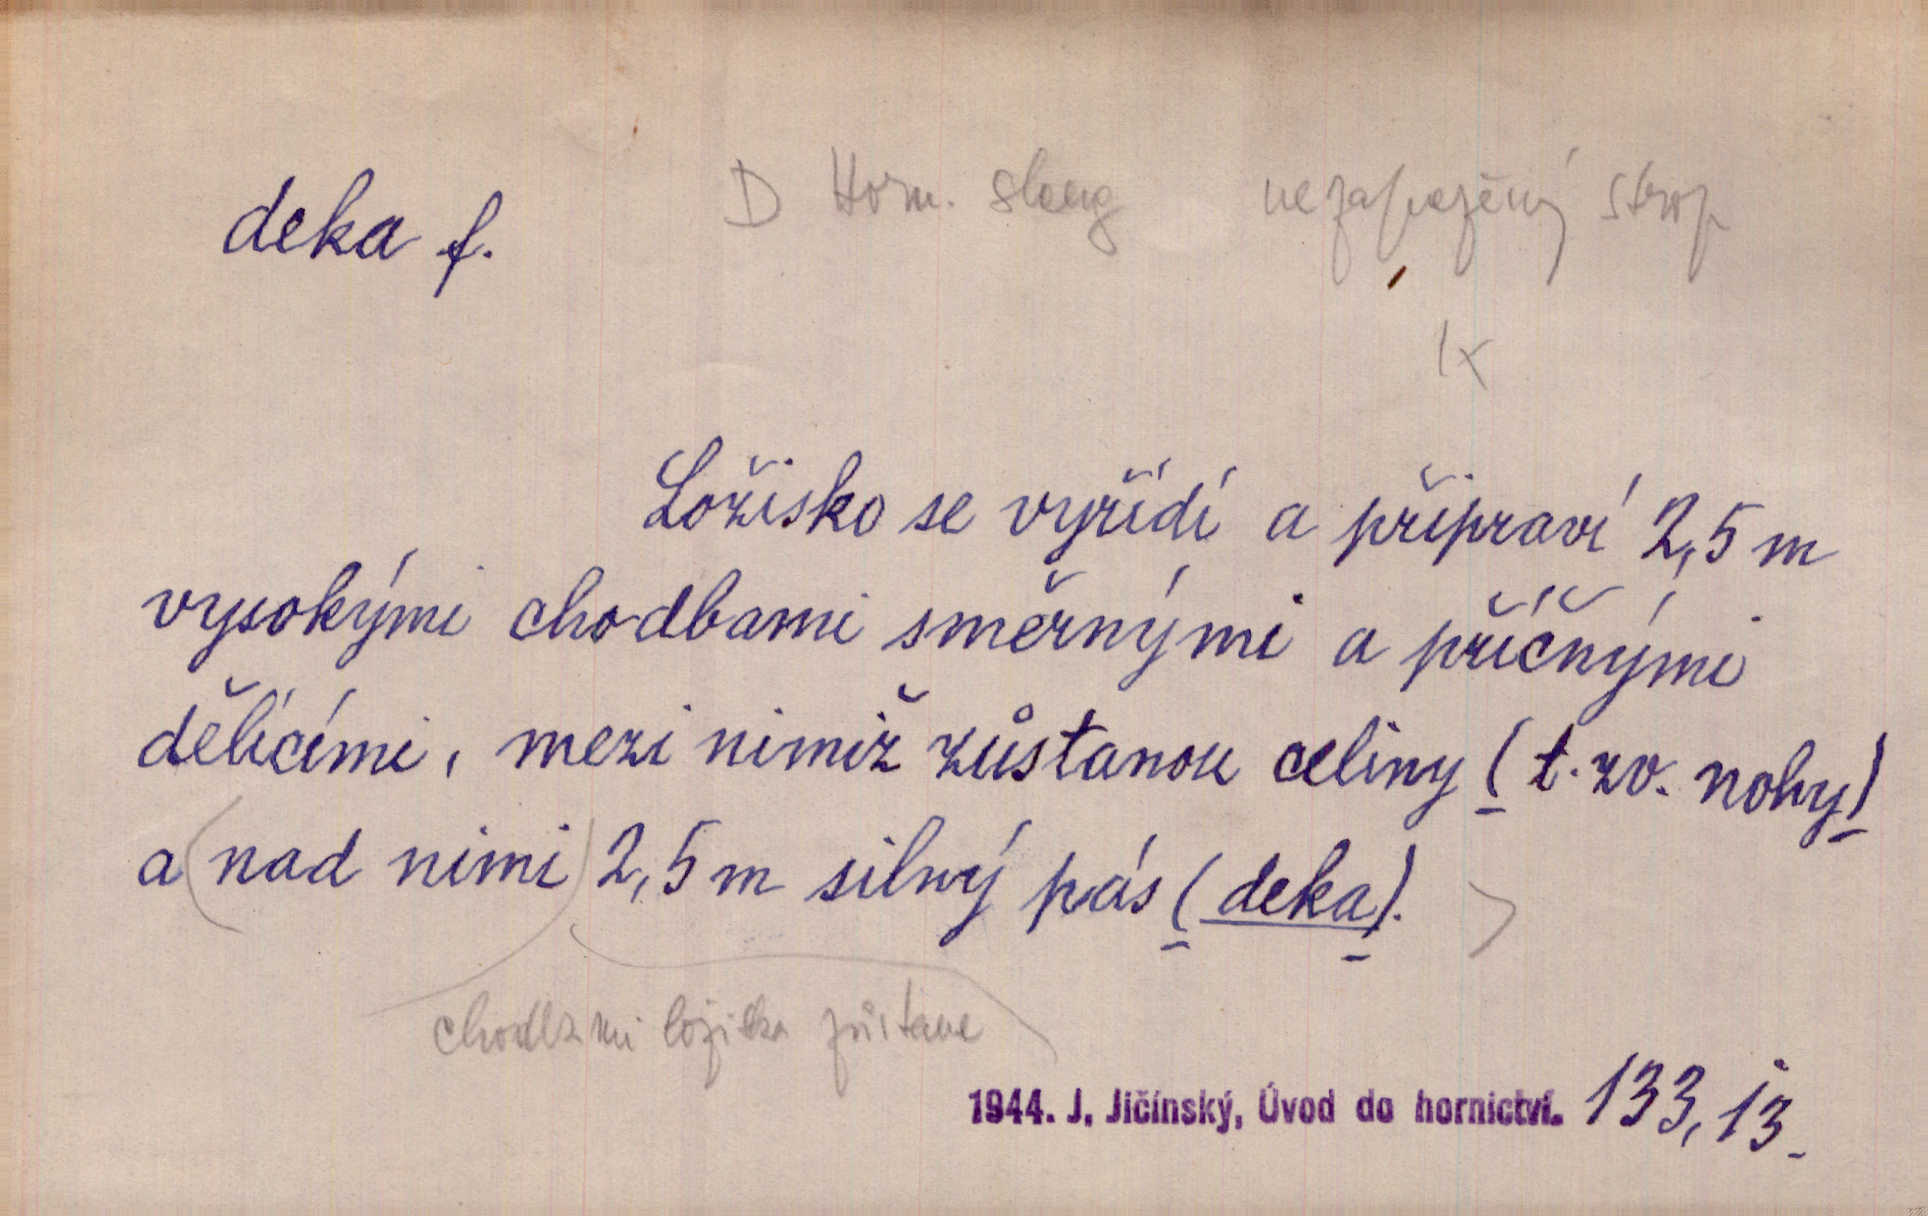 deka f. D Horn. slang nezapažený strop
1x
Ložisko se vyřídí a připraví 2,5 m
vysokými chodbami směrnými a příčnými
dělícími, mezi nimiž zůstanou celiny (t. zv. nohy)
a (nad nimi) 2,5 m silný pás (deka). >
chodbami ložiska zůstane
1944. J. Jičínský, Úvod do hornictví. 133, 13.